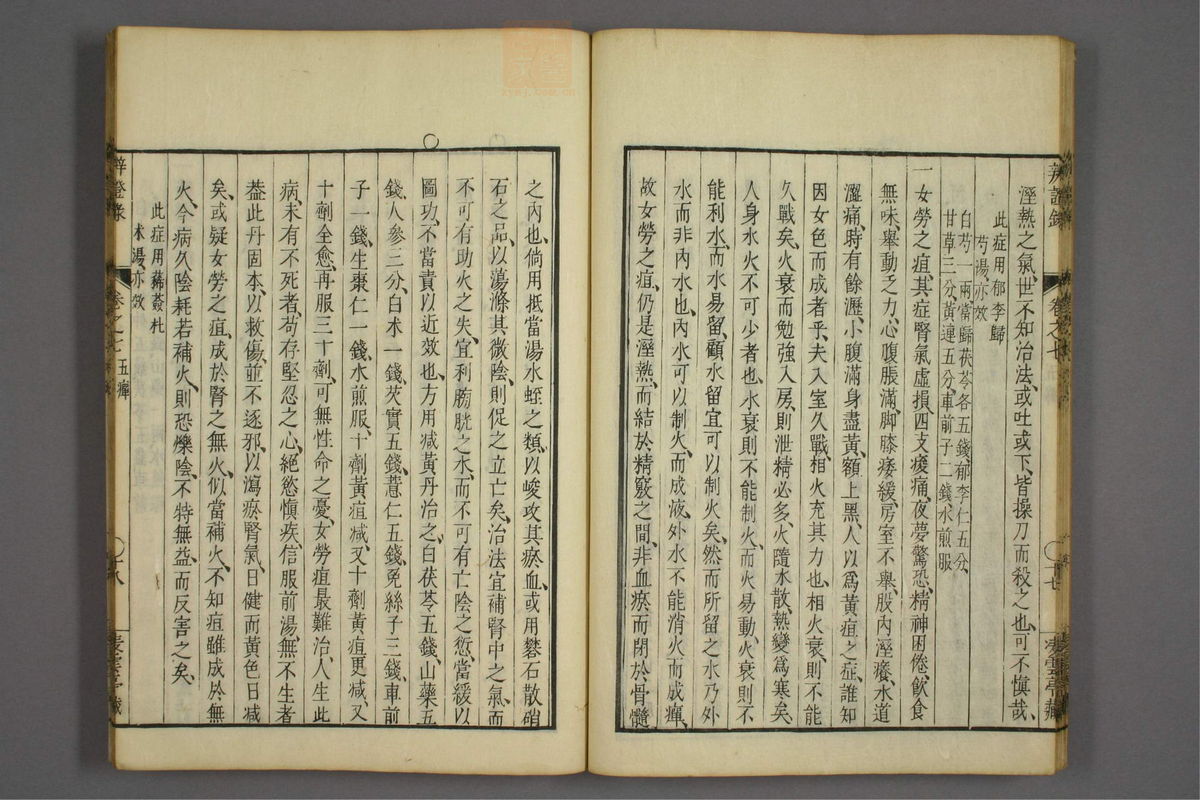 溼熱之氣世不知治法、或吐或下、皆操刀而殺之也、可不慎哉、
此症用郁李歸
芍湯、亦效
白芍一兩當歸茯苓各五錢、郁李仁五分、
甘草三分、黃連五分、車前子二錢水煎服
一女勞之疸、其症腎氣虛損、四支痠痛、夜夢驚恐、精神困倦、飲食
無味、舉動乏力、心腹脹滿、脚膝痿緩、房室不舉、股內溼癢、水道
澀痛、時有餘瀝、小腹滿、身盡黃、額上黑、人以爲黃疸之症、誰知
因女色而成者乎、夫入室久戰、相火充其力也、相火衰則不能
久戰矣、火衰而勉強入房、則泄精必多、火隨水散、熱變爲寒矣、
人身水火不可少者也、水衰則不能制火、而火易動、火衰則不
能利水、而水易留、顧水留宜可以制火矣、然而所留之水乃外
水而非內水也、內水可以制火、而成液、外水不能消火而成癉、
故女勞之疸、仍是溼熱、而結於精竅之間、非血瘀而閉於骨髓
辨證錄
卷之七
十七
之內也、倘用抵當湯水蛭之類、以峻攻其瘀血、或用礬石散硝
石之品、以蕩滌其微陰、則促之立亡矣、治法宜補腎中之氣、而
不可有助火之失、宜利膀胱之水、而不可有亡陰之愆、當緩以
圖功、不當責以近效也、方用減黃丹治之、白茯苓五錢、山藥五
錢、人參三分、白朮一錢、芡實五錢、薏仁五錢、兔絲子三錢、車前
子一錢、生棗仁一錢、水煎服、十劑黃疸減、又十劑黃疸更減、又
十劑全愈、再服三十劑、可無性命之憂、女勞疸最難治、人生此
病、未有不死者、苟存堅忍之心、絕慾慎疾、信服前湯、無不生者
蓋此丹固本、以救傷、並不逐邪、以瀉瘀、腎氣日健而黃色日減
矣、或疑女勞之疸、成於腎之無火、似當補火、不知疸雖成於無
火、今病久陰耗、若補火、則恐爍陰、不特無益、而反害之矣、
此症用蓊薟
朮湯、亦效
卷之七
五癉
十八